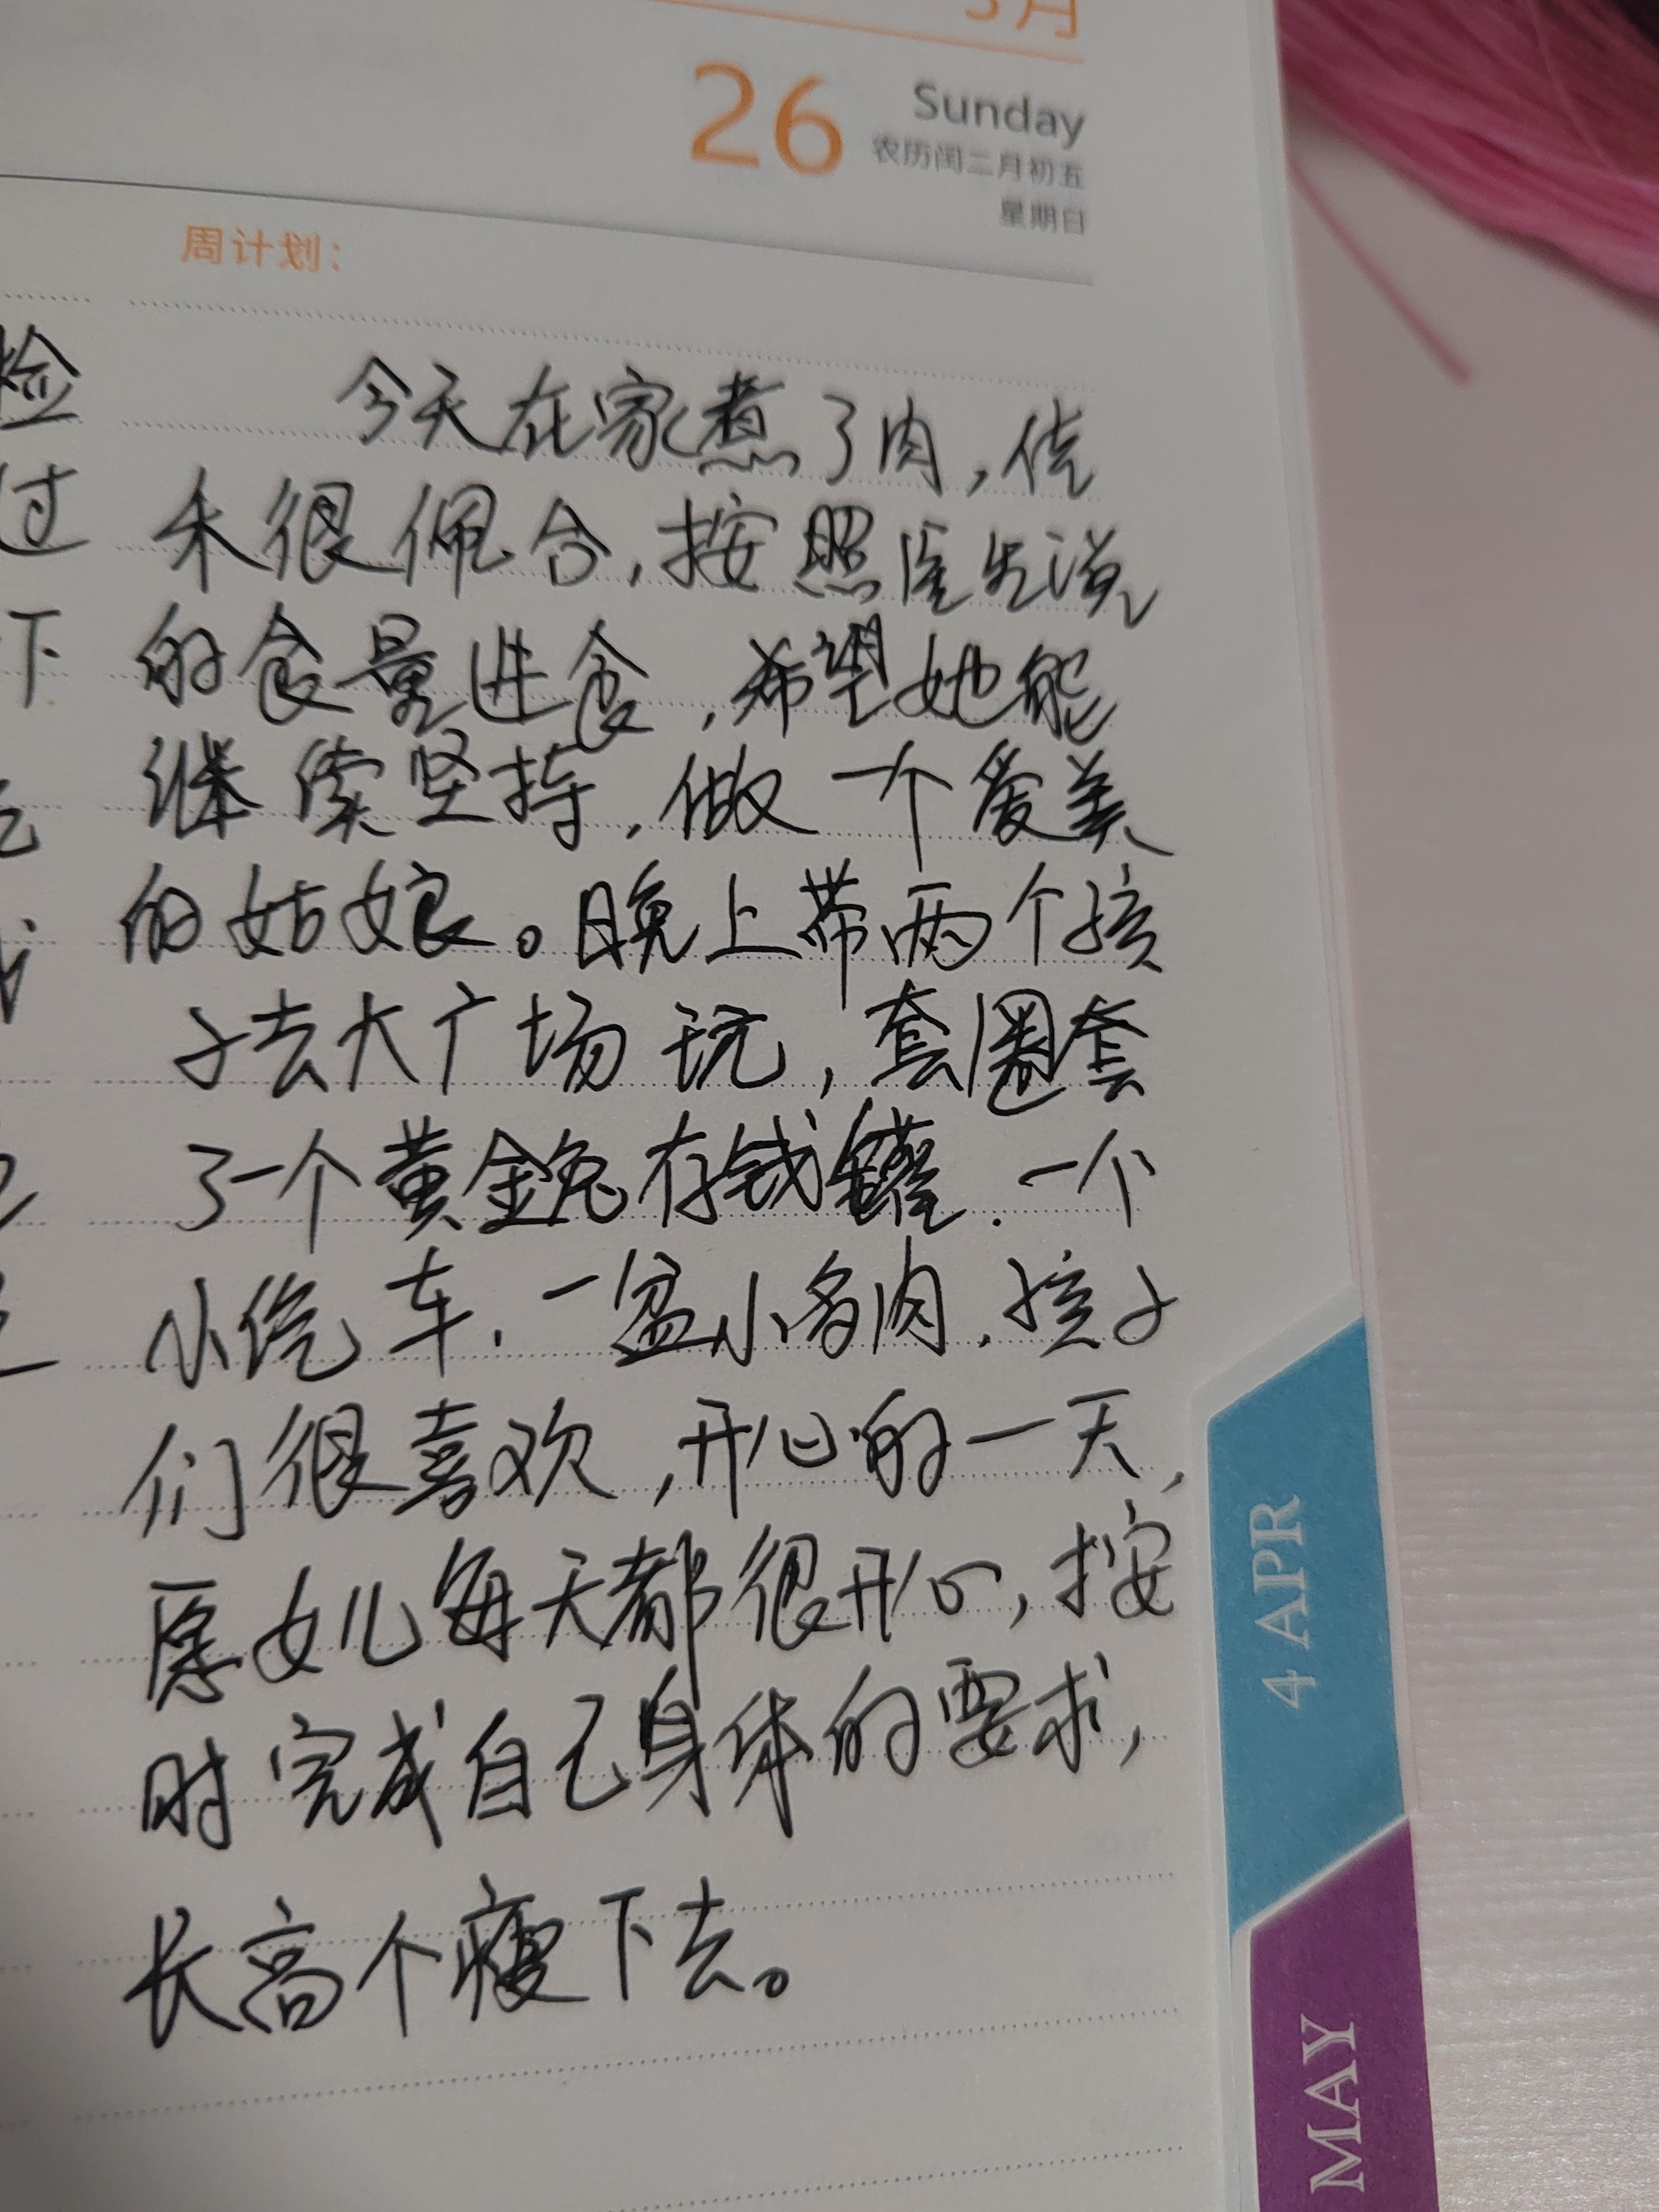 3月
26
Sunday
农历闰二月初五
星期日
周计划:
今天在家煮了肉,佳
禾很佩合,按照医生说
的食量进食,希望她能
继续坚持,做一个爱美
的姑娘。晚上带两个孩
子去大广场玩,套圈套
了一个黄金兔存钱罐.一个
小汽车.一盆小多肉.孩子
们很喜欢,开心的一天,
愿女儿每天都很开心,按
时完成自己身体的要求,
长高个瘦下去。
过
下
4 APR
MAY